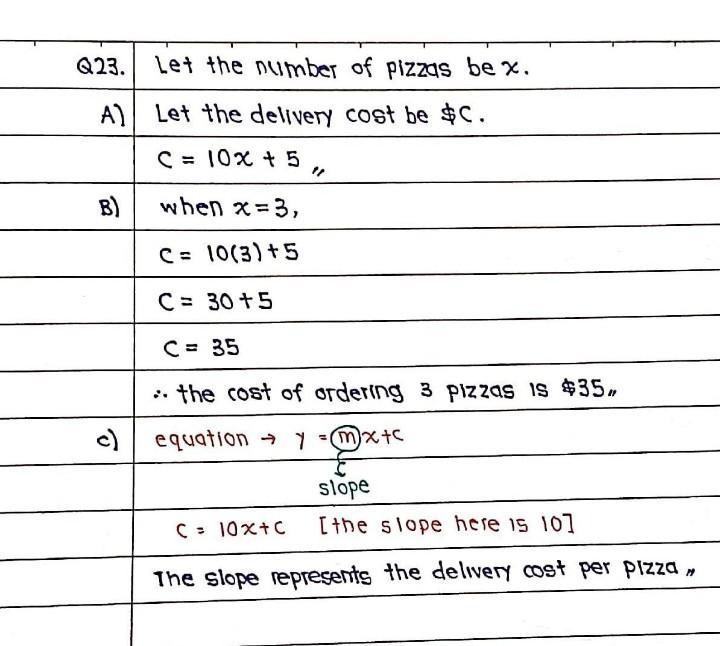 Q23. Let the number of pizzas be x.
A) Let the delivery cost be $C.
C = 10x + 5 〃
B) when x = 3,
C = 10(3) + 5
C = 30 + 5
C = 35
∴ the cost of ordering 3 pizzas is $35〃
c) equation → y = mx+c
slope
C = 10x+c [the slope here is 10]
The slope represents the delivery cost per pizza 〃